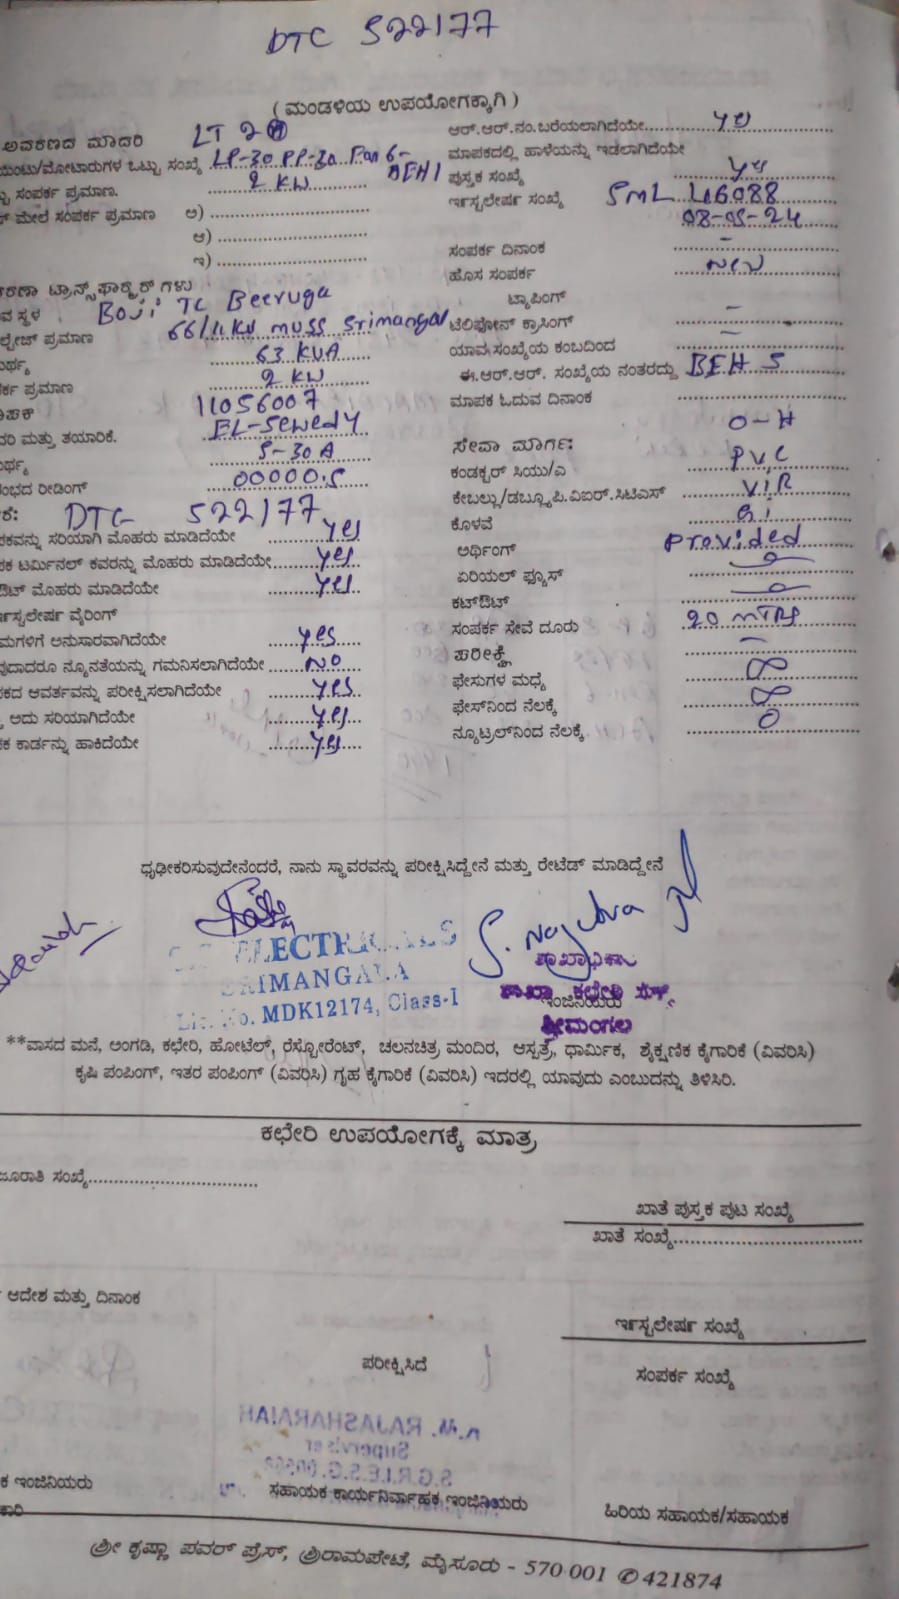 DTC 522177
( ಮಂಡಳಿಯ ಉಪಯೋಗಕ್ಕಾಗಿ )
ಅವಕಣದ ಮಾದರಿ LT 2
ಯಂಟು/ಮೋಟಾರುಗಳ ಒಟ್ಟು ಸಂಖ್ಯೆ LP-30 PP-30 Fan 6- BEH1
ಸಂಪರ್ಕ ಪ್ರಮಾಣ. 2 KW
ಮೇಲೆ ಸಂಪರ್ಕ ಪ್ರಮಾಣ ಅ) ..............................
ಆ) ..............................
ಇ) ..............................
ಕರಣಾ ಟ್ರಾನ್ಸ್‌ಫಾರ್ಮರ್ ಗಳು
ವ ಸ್ಥಳ Boji TC Beeruga
ಲ್ಟೇಜ್ ಪ್ರಮಾಣ 66/11 KV MUSS Srimangal
ರ್ಥ್ಯ 63 KVA
ರ್ಕ ಪ್ರಮಾಣ 2 KW
ಪಕ 11056007
ದರಿ ಮತ್ತು ತಯಾರಿಕೆ. EL-Sewedy
ರ್ಥ್ಯ 5-30 A
ಂಭದ ರೀಡಿಂಗ್ 00000.5
ಕೆ: DTC 522177
ಕವನ್ನು ಸರಿಯಾಗಿ ಮೊಹರು ಮಾಡಿದೆಯೇ yes
ಪಕ ಟರ್ಮಿನಲ್ ಕವರನ್ನು ಮೊಹರು ಮಾಡಿದೆಯೇ yes
ಔಟ್ ಮೊಹರು ಮಾಡಿದೆಯೇ yes
ರ್ಇಸ್ಟಲೇಷರ್ ವೈರಿಂಗ್
ಮಗಳಿಗೆ ಅನುಸಾರವಾಗಿದೆಯೇ yes
ವುದಾದರೂ ನ್ಯೂನತೆಯನ್ನು ಗಮನಿಸಲಾಗಿದೆಯೇ NO
ಕದ ಆವರ್ತವನ್ನು ಪರೀಕ್ಷಿಸಲಾಗಿದೆಯೇ yes
ಅದು ಸರಿಯಾಗಿದೆಯೇ yes
ಕ ಕಾರ್ಡನ್ನು ಹಾಕಿದೆಯೇ yes
ಆರ್.ಆರ್.ನಂ.ಬರೆಯಲಾಗಿದೆಯೇ yes
ಮಾಪಕದಲ್ಲಿ ಹಾಳೆಯನ್ನು ಇಡಲಾಗಿದೆಯೇ
ಪುಸ್ತಕ ಸಂಖ್ಯೆ yes
ರ್ಇಸ್ಟಲೇಷರ್ ಸಂಖ್ಯೆ SML 46088
08-05-24
ಸಂಪರ್ಕ ದಿನಾಂಕ -
ಹೊಸ ಸಂಪರ್ಕ New
ಟ್ಯಾಪಿಂಗ್
ಟೆಲಿಫೋನ್ ಕ್ರಾಸಿಂಗ್ -
ಯಾವ ಸಂಖ್ಯೆಯ ಕಂಬದಿಂದ -
ಈ.ಆರ್.ಆರ್. ಸಂಖ್ಯೆಯ ನಂತರದ್ದು BEH 5
ಮಾಪಕ ಓದುವ ದಿನಾಂಕ
ಸೇವಾ ಮಾರ್ಗ: O-H
ಕಂಡಕ್ಟರ್ ಸಿಯು/ಎ PVC
ಕೇಬಲ್ಲು/ಡಬ್ಲ್ಯೂ.ಪಿ.ವಿಐಆರ್.ಸಿಟಿಎಸ್ VIR
ಕೊಳವೆ GI
ಅರ್ಥಿಂಗ್ Provided
ಏರಿಯಲ್ ಫ್ಯೂಸ್
ಕಟ್‌ಔಟ್
ಸಂಪರ್ಕ ಸೇವೆ ದೂರು 20 MTRS
ಪರೀಕ್ಷೆ -
ಫೇಸುಗಳ ಮಧ್ಯೆ ∞
ಫೇಸ್‌ನಿಂದ ನೆಲಕ್ಕೆ ∞
ನ್ಯೂಟ್ರಲ್‌ನಿಂದ ನೆಲಕ್ಕೆ 0
ಧೃಢೀಕರಿಸುವುದೇನೆಂದರೆ, ನಾನು ಸ್ಥಾವರವನ್ನು ಪರೀಕ್ಷಿಸಿದ್ದೇನೆ ಮತ್ತು ರೇಟೆಡ್ ಮಾಡಿದ್ದೇನೆ
ELECTRICALS
SRIMANGALA
Lic. No. MDK12174, Class-I
ಶಾಖಾಧಿಕಾರಿ
ಶಾಖಾ ಕಛೇರಿ
ಇಂಜಿನಿಯರು
ಶ್ರೀಮಂಗಲ
**ವಾಸದ ಮನೆ, ಅಂಗಡಿ, ಕಛೇರಿ, ಹೋಟೆಲ್, ರೆಸ್ಟೋರೆಂಟ್, ಚಲನಚಿತ್ರ ಮಂದಿರ, ಆಸ್ಪತ್ರೆ, ಧಾರ್ಮಿಕ, ಶೈಕ್ಷಣಿಕ ಕೈಗಾರಿಕೆ (ವಿವರಿಸಿ)
ಕೃಷಿ ಪಂಪಿಂಗ್, ಇತರ ಪಂಪಿಂಗ್ (ವಿವರಿಸಿ) ಗೃಹ ಕೈಗಾರಿಕೆ (ವಿವರಿಸಿ) ಇದರಲ್ಲಿ ಯಾವುದು ಎಂಬುದನ್ನು ತಿಳಿಸಿರಿ.
ಕಛೇರಿ ಉಪಯೋಗಕ್ಕೆ ಮಾತ್ರ
ಜೂರಾತಿ ಸಂಖ್ಯೆ..................................
ಖಾತೆ ಪುಸ್ತಕ ಪುಟ ಸಂಖ್ಯೆ
ಖಾತೆ ಸಂಖ್ಯೆ..................................
ಆದೇಶ ಮತ್ತು ದಿನಾಂಕ
ರ್ಇಸ್ಟಲೇಷರ್ ಸಂಖ್ಯೆ
ಪರೀಕ್ಷಿಸಿದೆ
ಸಂಪರ್ಕ ಸಂಖ್ಯೆ
ಕ ಇಂಜಿನಿಯರು
ಸಹಾಯಕ ಕಾರ್ಯನಿರ್ವಾಹಕ ಇಂಜಿನಿಯರು
ಹಿರಿಯ ಸಹಾಯಕ/ಸಹಾಯಕ
ಕಾರಿ
ಶ್ರೀ ಕೃಷ್ಣಾ ಪವರ್ ಪ್ರೆಸ್, ಶ್ರೀರಾಮಪೇಟೆ, ಮೈಸೂರು - 570 001 ✆ 421874